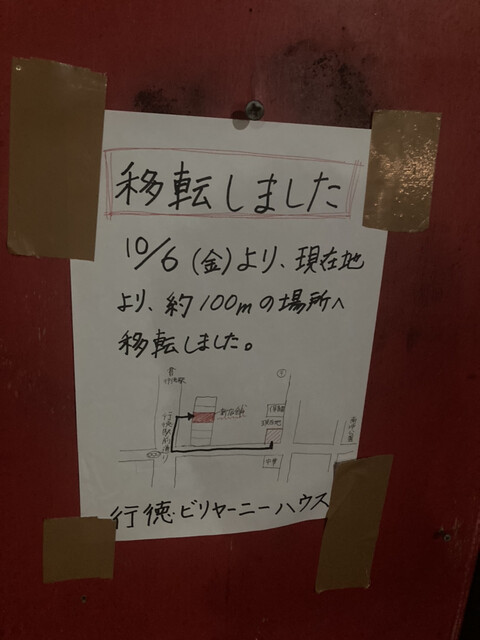 移転しました
10/6(金)より、現在地
より、約100mの場所へ
移転しました。
新店舗
現在地
行徳駅前通り
中華
行徳・ビリヤーニーハウス